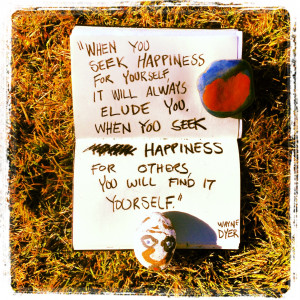 "WHEN YOU
SEEK HAPPINESS
FOR YOURSELF,
IT WILL ALWAYS
ELUDE YOU.
WHEN YOU SEEK
HAPPINESS
FOR OTHERS,
YOU WILL FIND IT
YOURSELF."
WAYNE
DYER